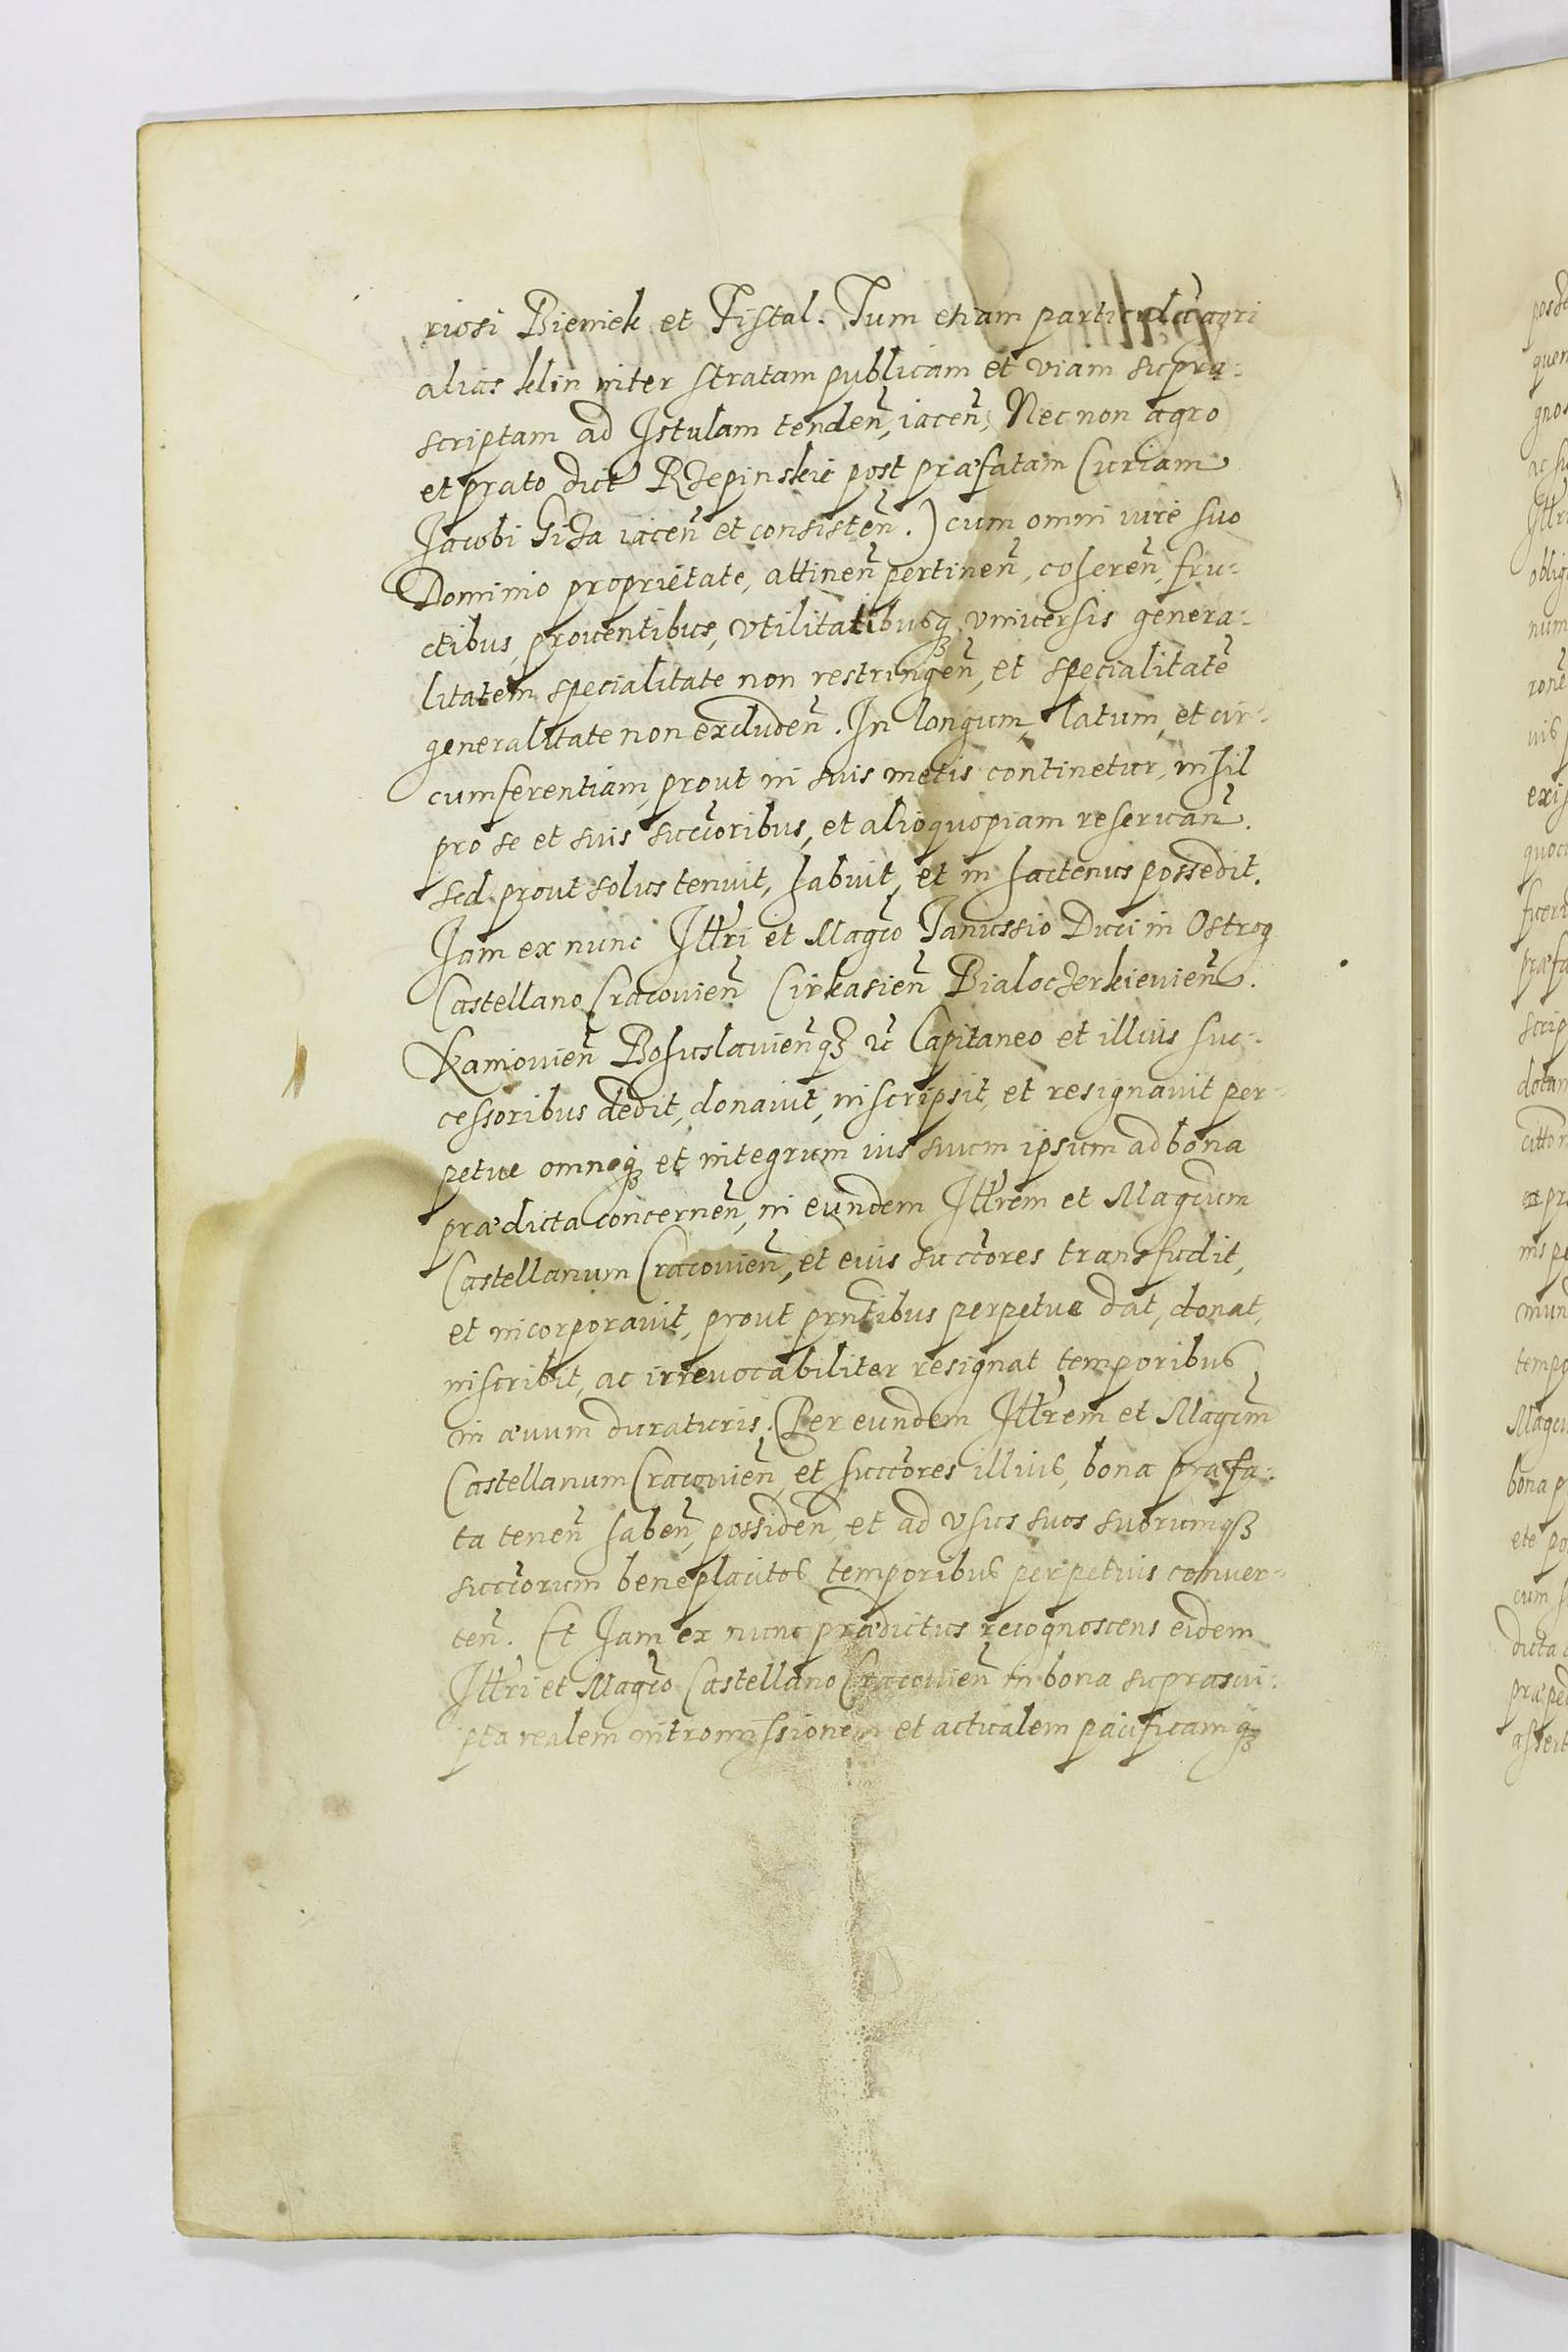 riosi Bieniek et Fistal. Tum etiam particula agri
alias klin inter stratam publicam et viam supra-
scriptam ad Istulam tendeñ, iaceñ, Nec non agro
et prato dict Rzepinskie post præfatam Curiam
Jacobi Giza iaceñ et consisteñ.) cum omni iure suo
Dominio proprietate, attineñ pertineñ, cohæreñ, fru-
ctibus, prouentibus, vtilitatibusq3 vniuersis genera-
litatem specialitate non restringeñ, et specialitatẽ
generalitate non excludeñ. In longum, latum, et cir-
cumferentiam, prout in suis metis continetur, nihil
pro se et suis succ̃oribus, et alio quopiam reseruañ.
sed prout solus tenuit, habuit, et in hactenus possedit.
Jam ex nunc Illr̃i et Magc̃o Janussio Duci in Ostrog
Castellano Cracouieñ Cirkasieñ Bialoczerkieuieñ.
Kaniouieñ Bohuslauieñq3 &c̃ Capitaneo et illius suc-
cessoribus dedit, donauit, inscripsit, et resignauit per-
petue omneq3 et integrum ius suum ipsum ad bona
prædicta concerneñ, in eundem Illr̃em et Magc̃um
Castellanum Cracouieñ, et eius succ̃ores transfudit,
et incorporauit, prout prñtibus perpetue dat, donat,
inscribit, ac irreuocabiliter resignat temporibus
in æuum duraturis. Per eundem Illr̃em et Magc̃um
Castellanum Cracouieñ, et succ̃ores illius, bona præfa-
ta teneñ habeñ, possideñ, et ad vsus suos suorumq3
succ̃orum beneplacitos temporibus perpetuis conuer-
teñ. Et Jam ex nunc prædictus recognoscens eidem
Illr̃i et Magc̃o Castellano Cracouieñ in bona suprascri-
pta realem intromissionem et actualem pacificamq3